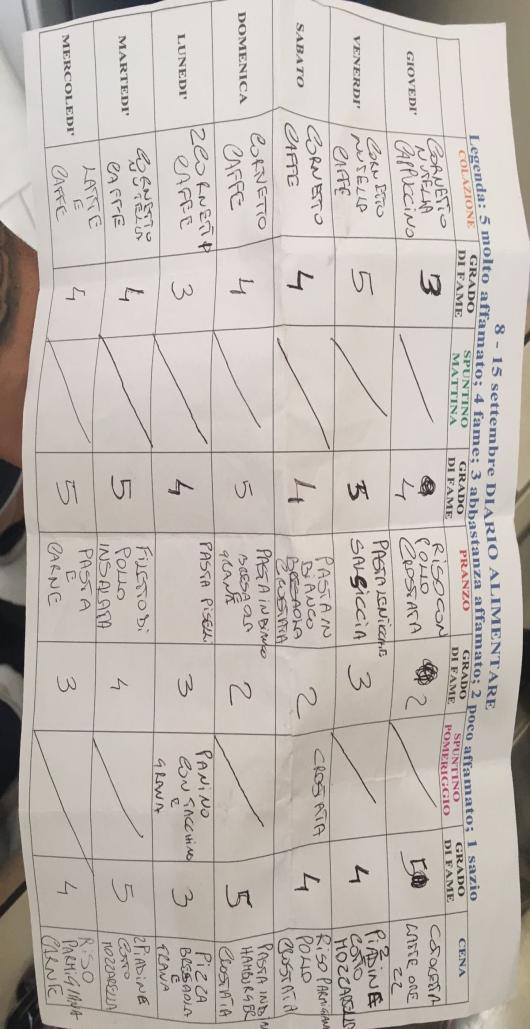 8 - 15 settembre DIARIO ALIMENTARE
Legenda: 5 molto affamato; 4 fame; 3 abbastanza affamato; 2 poco affamato; 1 sazio
COLAZIONE
GRADO
DI FAME
SPUNTINO
MATTINA
GRADO
DI FAME
PRANZO
GRADO
DI FAME
SPUNTINO
POMERIGGIO
GRADO
DI FAME
CENA
GIOVEDI'
CORNETTO
NUTELLA
CAPPUCCINO
3
4
RISO CON
POLLO
CROSTATA
2
5
COTOLETTA
LATTE ORE
22
VENERDI'
CORNETTO
NUTELLA
CAFFE
5
3
PASTA LENTICCHIE
SALSICCIA
3
4
2
PIADINE
COTTO
MOZZARELLA
SABATO
CORNETTO
CAFFE
4
4
PASTA IN
BIANCO
BRESAOLA
CROSTATA
2
CROSTATA
4
RISO PARMIGIANO
POLLO
CROSTATA
DOMENICA
CORNETTO
CAFFE
4
5
PASTA IN BIANCO
BRESAOLA
GRANA
2
5
PASTA IN
HAMBURGER
CROSTATA
LUNEDI'
2 CORNETTI
CAFFE
3
4
PASTA PISELLI
3
PANINO
CON TACCHINO
E
GRANA
3
PIZZA
BRESAOLA
E
GRANA
MARTEDI'
CORNETTO
NUTELLA
CAFFE
4
5
FILETTO DI
POLLO
INSALATA
4
5
2 PIADINE
COTTO
MOZZARELLA
MERCOLEDI'
LATTE
E
CAFFE
4
5
PASTA
E
CARNE
3
4
RISO
PARMIGIANA
CARNE